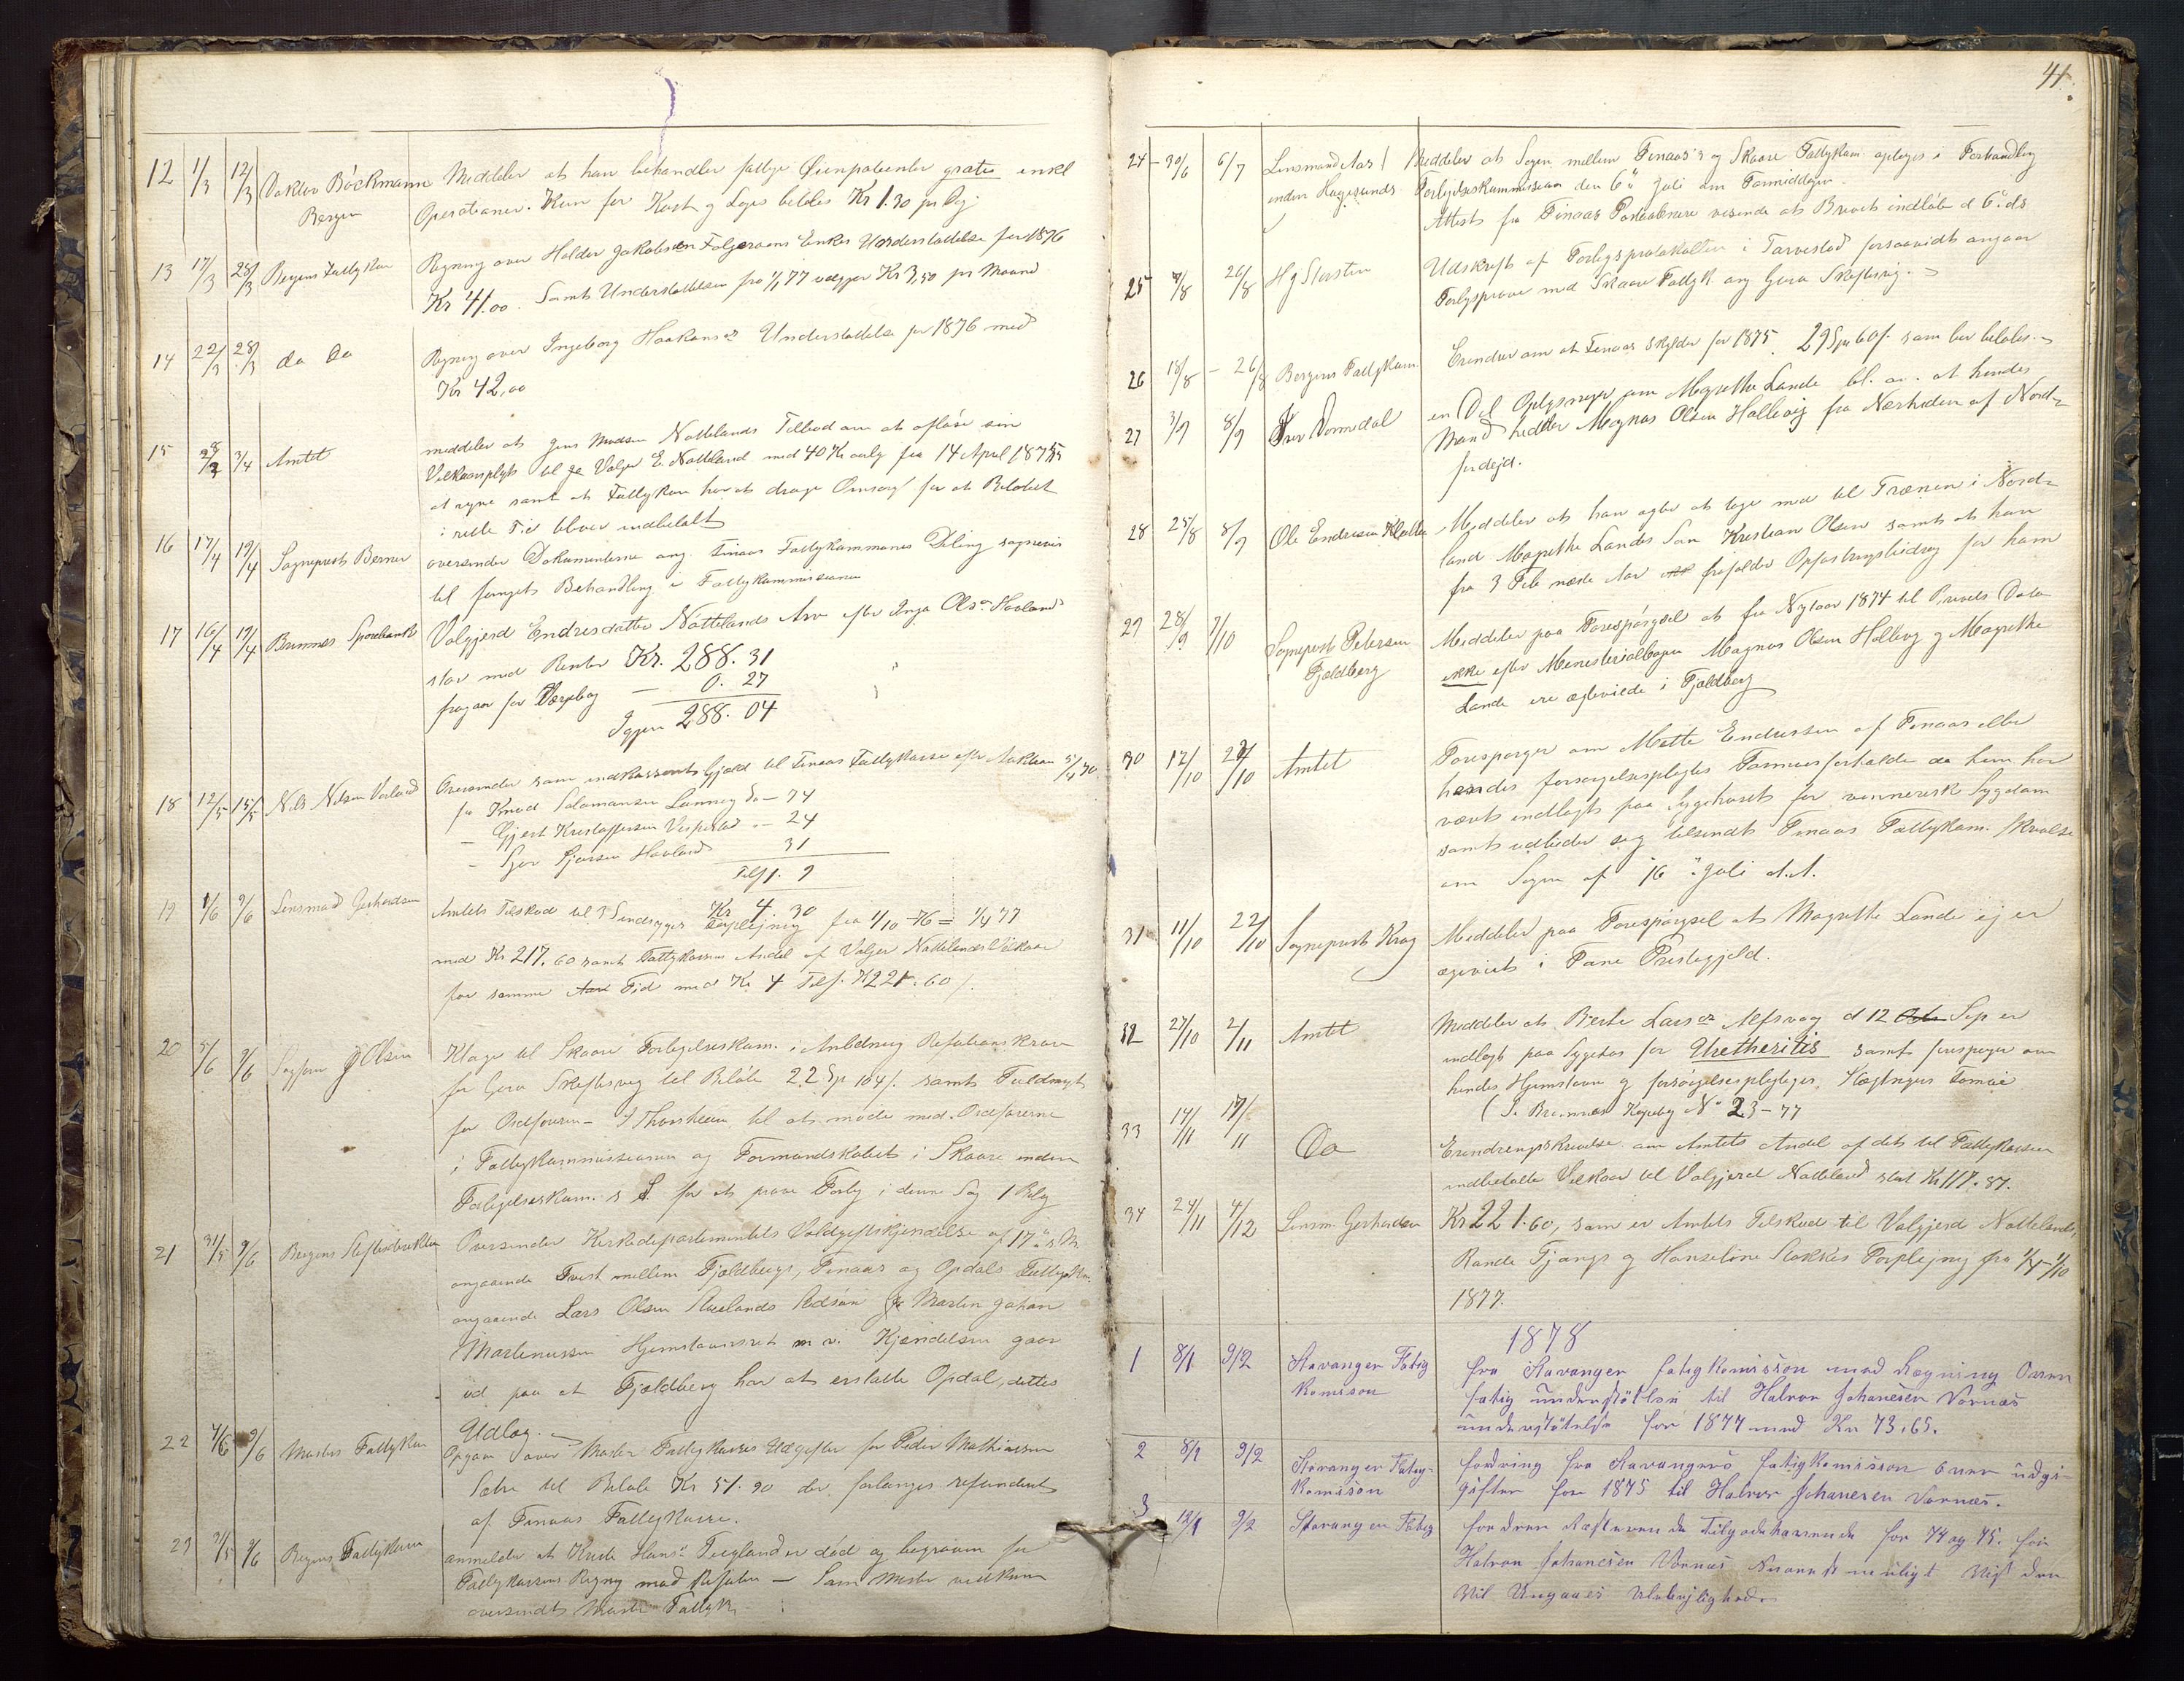 12 1/3 12/3 Doktor Böckmann Bergen
Meddeler at han behandler fattige Öienpatienter gratis enkl
Operationer. Kun for Kost og Logis betales Kr 1.30 pr Dag.
13 17/3 28/3 Bergens Fattigkom
Regning over Halder Jakobsen Enkes Understøttelse for 1876
Kr 41.00. Samt Understøttelsen fra 1/1 77 Kr 3,50 pr Maaned
14 22/3 28/3 do Do
Regning over Ingeborg Haakonsdr Understøttelse for 1876 med
Kr 42,00
15 3/4 Amtet
meddeler at Jens Madsen Nattelands Tilbud om at afløse sin
Vilkaarspligt til Valgjer E. Natteland med 40 Kr aarlig fra 14 April 1875
at regne samt at Fattigkom har at drage Omsorg for at Beløbet
i rette Tid bliver indbetalt
16 17/4 19/4 Sogneprest Berner
oversender Dokumenterne ang. Finaas Fattigkommunes Deling sognevis
til fornyet Behandling i Fattigkommissionen
17 16/4 19/4 Bremnes Sparebank
Valgjerd Endresdatter Nattelands Arv efter Inga Olsdr Havland
stor med Renter Kr. 288. 31
fragaar for 0. 27
Igjen 288. 04
18 12/5 15/5 Nils Nilsen Vorland
Oversender som indkasseret Gjæld til Finaas Fattigkasse efter Auktion
fra Knud Salamonsen Lønning - 34
- Gjert Kristoffersen Vespestad - 24
- Sjur Sjursen Havland 31
Tils 1. 9
Kr 4. 30
19 1/6 9/6 Lensmand Gerhardsen
Amtets Tilskud til 3 Sindsyges Forplejning fra 1/10 - 76 = 1/4 77
med Kr 217.60 samt Fattigkassens Andel af Valgjer Nattelands Vilkaar
for samme Tid med Kr 4 Tils. K 221.60
20 5/6 9/6 Sagfører J Olsen
Klage til Skaare Forligelseskom. i Anledning Refusions Krav
for Gura Skeftesvig til Beløb 22 Sp 104 s. samt Fuldmagt
for Ordføreren - J Thorsheim til at møde med Ordførerne
i Fattigkommissionen og Formandskabet i Skaare inden
Forligelseskom. s S. for at prøve Forlig i denne Sag 1 Bilag
21 31/5 9/6 Bergens Stiftsdirektion
Oversender Kirkedepartementets Voldgiftskjendelse af 17de s M
angaaende Tvist mellem Fjeldbergs, Finaas og Opdals Fattigkom.
angaaende Lars Olsen Martin Johan
Martinussen Hjemstavnsret m v. Kjendelsen gaar
ud paa at Fjeldberg har at erstatte Opdal, dettes
Udlæg.
22 4/6 9/6 Mosters Fattigkom
Opgave over Moster Fattigkasses Udgifter for Peder Mathiassen
Sætre til Beløb Kr 51.90 der forlanges refunderet
af Finaas Fattigkasse.
23 31/5 9/6 Bergens Fattigkom
anmelder at Kirste Hansdr er død og begraven for
Fattigkassens Regning mod Refusion - Som
oversendt Moster Fattigk.
41.
24 - 30/6 6/7 Lensmand Aas/ inden Haugesunds
Meddeler at Sagen mellem Finaas's og Skaare Fattigkom optages i Forhandling
Forligelseskommission den 6te Juli om Formiddagen
Attest fra Finaas Postaabneri visende at Brevet indløb d 6te ds
25 7/8 26/8 H g Storsten
Udskrift af Forligsprotokollen i Torvestad forsaavidt angaar
Forligsprøve med Skaare Fattigk ang Gura Skeftesvig.
26 18/8 - 26/8 Bergens Fattigkom
Erindrer om at Finaas skylder for 1875 29 Sp 60 s. som bør betales.
27 3/9 8/9 Iver Dommedal
en Del Oplysninger om Magrethe Lande bl. a. at hendes
Mand hedder Magnus Olsen Hallevig fra Nærheden af Nord=
fordejd.
28 25/8 8/9 Ole Endresen
Meddeler at han agter at tage med til Trænen i Nord=
land Magrethe Landes Søn Kristian Olsen samt at han
fra 3 Feb næste Aar frafalder Opfostringsbidrag for ham
29 28/9 7/10 Sogneprest Petersen Fjeldberg
Meddeler paa Forespørgsel at fra Nytaar 1874 til Brevets Dato
ikke efter Ministerialbogen Magnus Olsen Hallevig og Magrethe
Lande ere ægteviede i Fjeldberg
30 12/10 22/10 Amtet
Forespørger om Mette Endresen af Finaas eller
hendes forsørgelsespligtes Formuesforholde da hun har
været indlagt paa Sygehuset for venerisk Sygdom
samt udbeder sig tilsendt Finaas Fattigkom. Skrivelse
om Sagen af 16de Juli d.A.
31 11/10 22/10 Sogneprest Krog
Meddeler paa Forespørgsel at Magrethe Lande ej er
ægteviet i Fane Prestegjeld.
32 27/10 2/11 Amtet
Meddeler at Berte Larsdr Alfsvaag d 12 Sep er
indlagt paa Sygehus for Uretheritis samt forespørger om
hendes Hjemstavn og forsørgelsespligtiges Slægtninges Formue
(I Bremnes Kopibog No 23 - 77
33 14/11 17/11 Do
Erindringsskrivelse om Amtets Andel af dets til Fattigkassen
indbetalte Vilkaar til Valgjerd Natteland stort Kr 117.87.
34 24/11 4/12 Lensm. Gerhardsen
Kr 221.60, som er Amtets Tilskud til Valgjerd Nattelands,
Rande Tjongs og Hanseline Stokkes Forplejning fra 1/4 - 1/10
1877.
1878
1 8/1 9/2 Stavanger Fatig Komison
fra Stavanger fatigkomisson med Regning Over
fatig understøttelse til Halvor Johanesen Vornæs
understøtelse for 1877 med Kr 73,65.
2 8/1 9/2 Stavanger Fatig- Komison
fordring fra Stavangers fatigkomisson over udgi-
gifter for 1875 til Halvor Johanesen Vornæs.
3 12/1 9/2 Stavanger Fatig
fordrer Resterende Tilgodehavende for 74 og 75. for
Halvor Johanesen Vornæs
vil